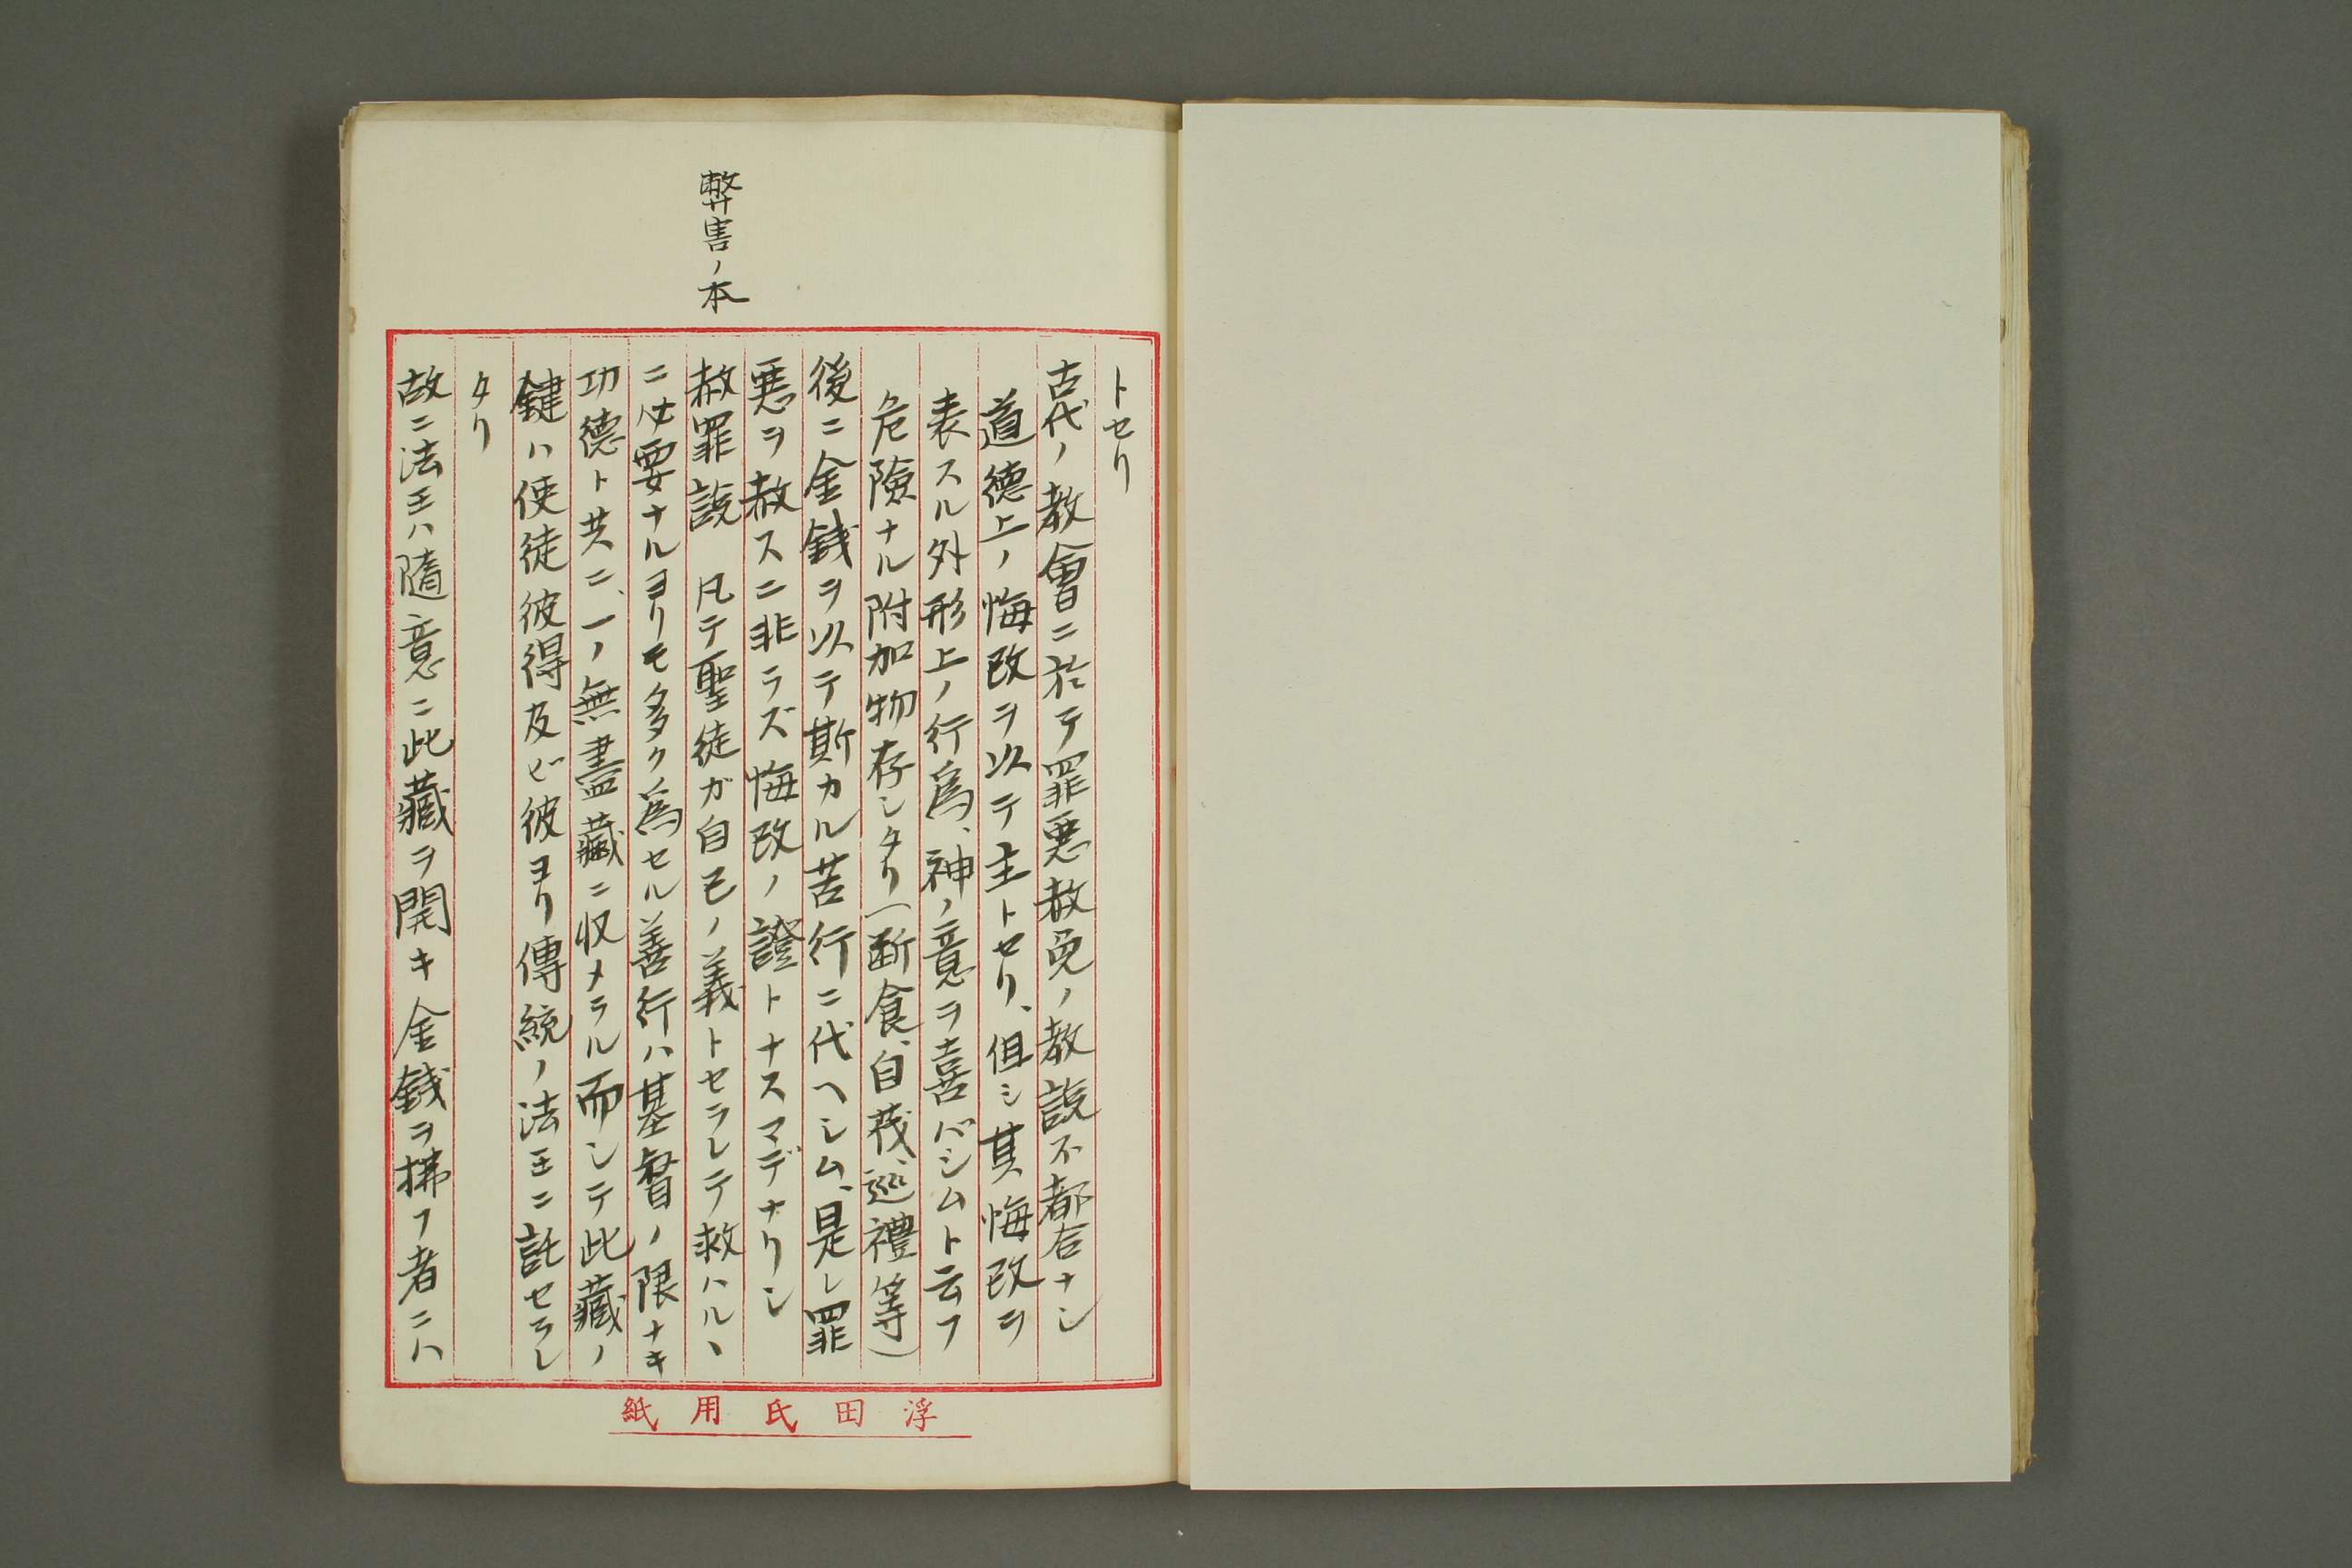 弊害ノ本
トセリ
古代ノ教會ニ於テ罪悪赦免ノ教說不都合ナシ
道德上ノ悔改ヲ以テ主トセリ、但シ其悔改ヲ
表スル外形上ノ行爲、神ノ意ヲ喜バシムト云フ
危險ナル附加物存シタリ(断食、自茂、巡禮等)
後ニ金錢ヲ以テ斯カル苦行ニ代ヘシム、是レ罪
悪ヲ赦スニ非ラズ悔改ノ證トナスマデナリシ
赦罪說 凡テ聖徒ガ自己ノ義トセラレテ救ハルヽ
ニ必要ナルヨリモ多ク爲セル善行ハ基督ノ限ナキ
功德ト共ニ、一ノ無盡藏ニ収メラル而シテ此藏ノ
鍵ハ使徒彼得及ビ彼ヨリ傳統ノ法王ニ託セラレ
タリ
故ニ法王ハ隨意ニ此藏ヲ開キ金錢ヲ拂フ者ニハ
浮田氏用紙